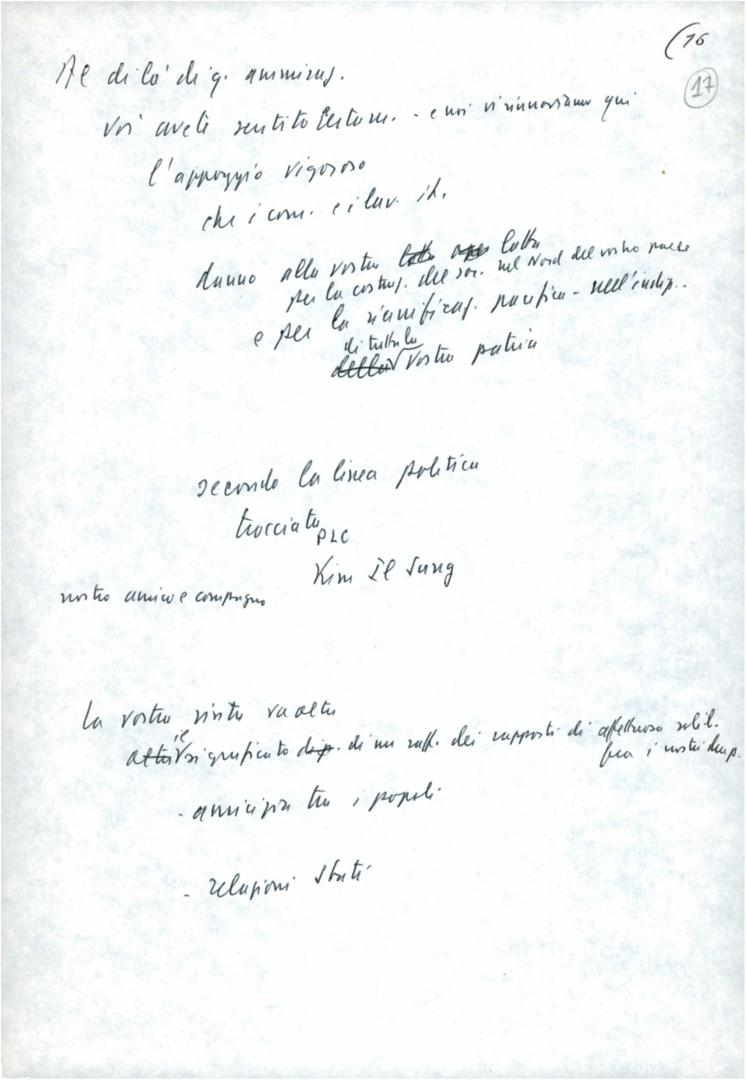 (16
17
Al di là di q. ammiraz.
Voi avete sentito - e noi vi rinnoviamo qui
l'appoggio vigoroso
che i com. e i lav. it.
danno alla vostra lotta lotta
per la costruz. del soc. nel Nord del vostro paese
e per la riunificaz. pacifica - nell'indip..
di tutta la
della vostra patria
secondo la linea politica
tracciata
PLC
Kim Il Sung
nostro amico e compagno
La vostra visita ha altr
il
altri significato di un raff. dei rapporti di affettuosa solid.
fra i nostri due p.
- amicizia tra i popoli
- relazioni stati